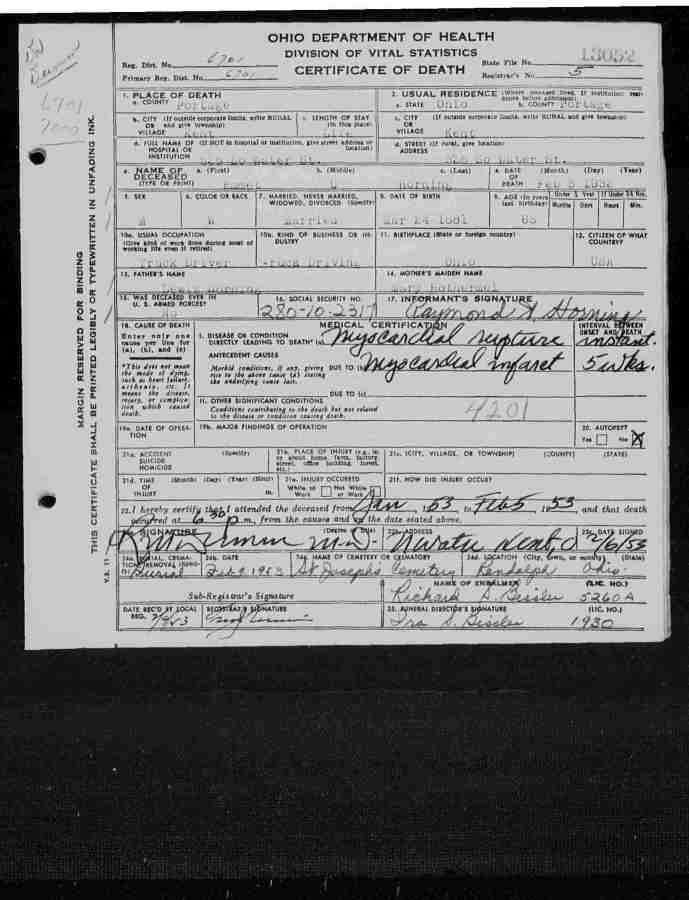 OHIO DEPARTMENT OF HEALTH
DIVISION OF VITAL STATISTICS
CERTIFICATE OF DEATH
Reg. Dist. No. 6701
Primary Reg. Dist. No. 6701
State File No. 13052
Registrar's No. 5
6701
7000
MARGIN RESERVED FOR BINDING
THIS CERTIFICATE SHALL BE PRINTED LEGIBLY OR TYPEWRITTEN IN UNFADING INK.
1. PLACE OF DEATH
a. COUNTY Portage
2. USUAL RESIDENCE (Where deceased lived. If institution: residence before admission).
a. STATE Ohio b. COUNTY Portage
b. CITY (If outside corporate limits, write RURAL and give township)
OR
VILLAGE Kent
c. LENGTH OF STAY (in this place)
Life
c. CITY (If outside corporate limits, write RURAL and give township)
OR
VILLAGE Kent
d. FULL NAME OF (If NOT in hospital or institution, give street address or location)
HOSPITAL OR
INSTITUTION So Water St.
d. STREET (If rural, give location)
ADDRESS So Water St.
3. NAME OF DECEASED
(TYPE OR PRINT)
a. (First) b. (Middle) c. (Last)
Horning
4. DATE OF DEATH (Month) (Day) (Year)
Feb 5
5. SEX
M
6. COLOR OR RACE
W
7. MARRIED, NEVER MARRIED, WIDOWED, DIVORCED (Specify)
Married
8. DATE OF BIRTH
Mar 24
9. AGE (In years last birthday)
If Under 1 Year Months Days
If Under 24 Hrs. Hours Min.
10a. USUAL OCCUPATION
(Give kind of work done during most of working life, even if retired)
Truck Driver
10b. KIND OF BUSINESS OR INDUSTRY
Truck Driving
11. BIRTHPLACE (State or foreign country)
Ohio
12. CITIZEN OF WHAT COUNTRY?
USA
13. FATHER'S NAME
Lewis Horning
14. MOTHER'S MAIDEN NAME
Mary
15. WAS DECEASED EVER IN U. S. ARMED FORCES?
No
16. SOCIAL SECURITY NO.
280-10-2317
17. INFORMANT'S SIGNATURE
Raymond Horning
18. CAUSE OF DEATH
Enter only one cause per line for (a), (b), and (c)
*This does not mean the mode of dying, such as heart failure, asthenia, etc. It means the disease, injury, or complication which caused death.
MEDICAL CERTIFICATION
INTERVAL BETWEEN ONSET AND DEATH
I. DISEASE OR CONDITION
DIRECTLY LEADING TO DEATH* (a) Myocardial rupture instant.
ANTECEDENT CAUSES
Morbid conditions, if any, giving rise to the above cause (a) stating the underlying cause last.
DUE TO (b) Myocardial infarct 5 wks.
DUE TO (c)
II. OTHER SIGNIFICANT CONDITIONS
Conditions contributing to the death but not related to the disease or condition causing death.
4201
19a. DATE OF OPERATION
19b. MAJOR FINDINGS OF OPERATION
20. AUTOPSY?
Yes No X
21a. ACCIDENT SUICIDE HOMICIDE (Specify)
21b. PLACE OF INJURY (e.g., in or about home, farm, factory, street, office building, forest, etc.)
21c. (CITY, VILLAGE, OR TOWNSHIP) (COUNTY) (STATE)
21d. TIME OF INJURY (Month) (Day) (Year) (Hour) m.
21e. INJURY OCCURRED
While at Work Not While at Work
21f. HOW DID INJURY OCCUR?
22. I hereby certify that I attended the deceased from Jan, 1953, to Feb 5, 1953, and that death
occurred at 6:30 p. m., from the causes and on the date stated above.
SIGNATURE (Degree or title) M.D.
23b. ADDRESS Kent O
23c. DATE SIGNED 2/6/53
24a. BURIAL, CREMATION, REMOVAL (Specify)
Burial
24b. DATE
Feb 9 1953
24c. NAME OF CEMETERY OR CREMATORY
St Josephs Cemetery
24d. LOCATION (City, town, or county) (State)
Randolph Ohio
V.S. 11
Sub-Registrar's Signature
NAME OF EMBALMER (LIC. NO.)
Richard A. Bissler 5260A
DATE REC'D BY LOCAL REG.
REGISTRAR'S SIGNATURE
25. FUNERAL DIRECTOR'S SIGNATURE (LIC. NO.)
S. Bissler 1930